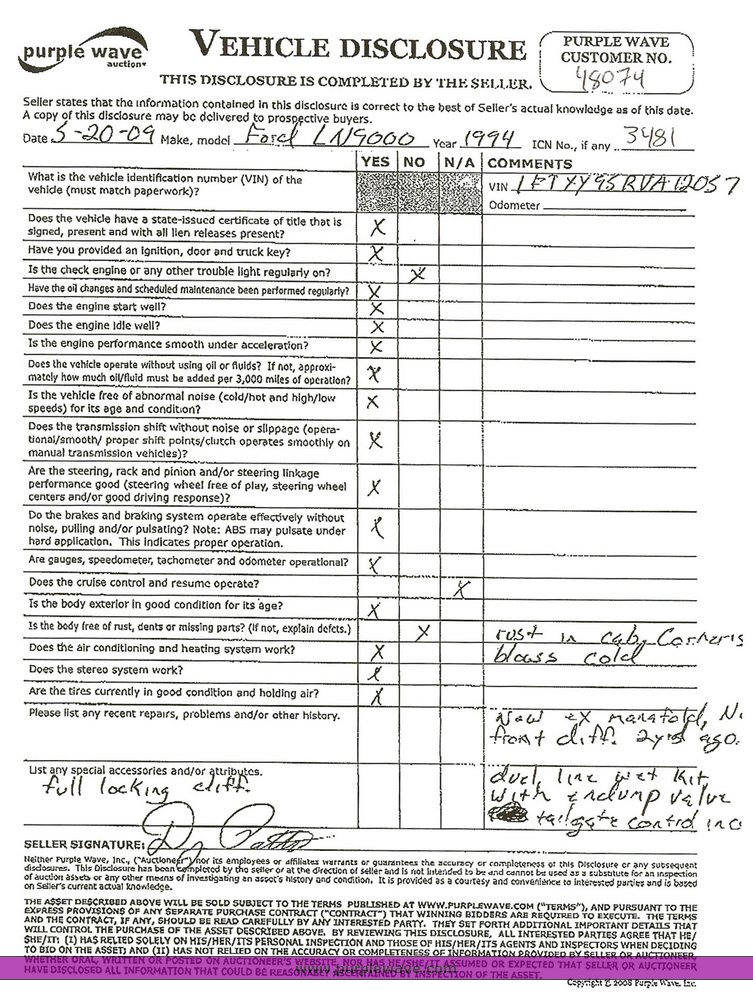 purple wave
auction
VEHICLE DISCLOSURE
THIS DISCLOSURE IS COMPLETED BY THE SELLER.
PURPLE WAVE
CUSTOMER NO.
48074
Seller states that the information contained in this disclosure is correct to the best of Seller's actual knowledge as of this date.
A copy of this disclosure may be delivered to prospective buyers.
Date 5-20-09 Make, model Ford LN9000 Year 1994 ICN No., if any 3481
YES NO N/A COMMENTS
What is the vehicle identification number (VIN) of the
vehicle (must match paperwork)?
VIN 1FTXY95RVA12057
Odometer
Does the vehicle have a state-issued certificate of title that is
signed, present and with all lien releases present? X
Have you provided an ignition, door and truck key? X
Is the check engine or any other trouble light regularly on? X
Have the oil changes and scheduled maintenance been performed regularly? X
Does the engine start well? X
Does the engine idle well? X
Is the engine performance smooth under acceleration? X
Does the vehicle operate without using oil or fluids? If not, approxi-
mately how much oil/fluid must be added per 3,000 miles of operation? X
Is the vehicle free of abnormal noise (cold/hot and high/low
speeds) for its age and condition? X
Does the transmission shift without noise or slippage (opera-
tional/smooth/ proper shift points/clutch operates smoothly on
manual transmission vehicles)? X
Are the steering, rack and pinion and/or steering linkage
performance good (steering wheel free of play, steering wheel
centers and/or good driving response)? X
Do the brakes and braking system operate effectively without
noise, pulling and/or pulsating? Note: ABS may pulsate under
hard application. This indicates proper operation. X
Are gauges, speedometer, tachometer and odometer operational? X
Does the cruise control and resume operate? X
Is the body exterior in good condition for its age? X
Is the body free of rust, dents or missing parts? (If not, explain defcts.) X rust in cab, Corners
Does the air conditioning and heating system work? X blows cold
Does the stereo system work? X
Are the tires currently in good condition and holding air? X
Please list any recent repairs, problems and/or other history.
New ex manafold, N
front diff. 2yrs ago.
List any special accessories and/or attributes.
full locking diff.
duel line wet kit,
with endump valve
tailgate control inc
SELLER SIGNATURE:
Neither Purple Wave, Inc., ("Auctioneer") nor its employees or affiliates warrants or guarantees the accuracy or completeness of this Disclosure or any subsequent
disclosures. This Disclosure has been completed by the seller or at the direction of seller and is not intended to be and cannot be used as a substitute for an inspection
of auction assets or any other means of investigating an asset's history and condition. It is provided as a courtesy and convenience to interested parties and is based
on Seller's current actual knowledge.
THE ASSET DESCRIBED ABOVE WILL BE SOLD SUBJECT TO THE TERMS PUBLISHED AT WWW.PURPLEWAVE.COM ("TERMS"), AND PURSUANT TO THE
EXPRESS PROVISIONS OF ANY SEPARATE PURCHASE CONTRACT ("CONTRACT") THAT WINNING BIDDERS ARE REQUIRED TO EXECUTE. THE TERMS
AND THE CONTRACT, IF ANY, SHOULD BE READ CAREFULLY BY ANY INTERESTED PARTY. THEY SET FORTH ADDITIONAL IMPORTANT DETAILS THAT
WILL CONTROL THE PURCHASE OF THE ASSET DESCRIBED ABOVE. BY REVIEWING THIS DISCLOSURE, ALL INTERESTED PARTIES AGREE THAT HE/
SHE/IT: (I) HAS RELIED SOLELY ON HIS/HER/ITS PERSONAL INSPECTION AND THOSE OF HIS/HER/ITS AGENTS AND INSPECTORS WHEN DECIDING
TO BID ON THE ASSET; AND (II) HAS NOT RELIED ON THE ACCURACY OR COMPLETENESS OF INFORMATION PROVIDED BY SELLER OR AUCTIONEER,
WHETHER ORAL, WRITTEN OR POSTED ON AUCTIONEER'S WEBSITE, NOR HAS HE/SHE/IT ASSUMED OR EXPECTED THAT SELLER OR AUCTIONEER
HAVE DISCLOSED ALL INFORMATION THAT COULD BE REASONABLY ASCERTAINED BY INSPECTION OF THE ASSET.
www.purplewave.com
Copyright © 2008 Purple Wave, Inc.